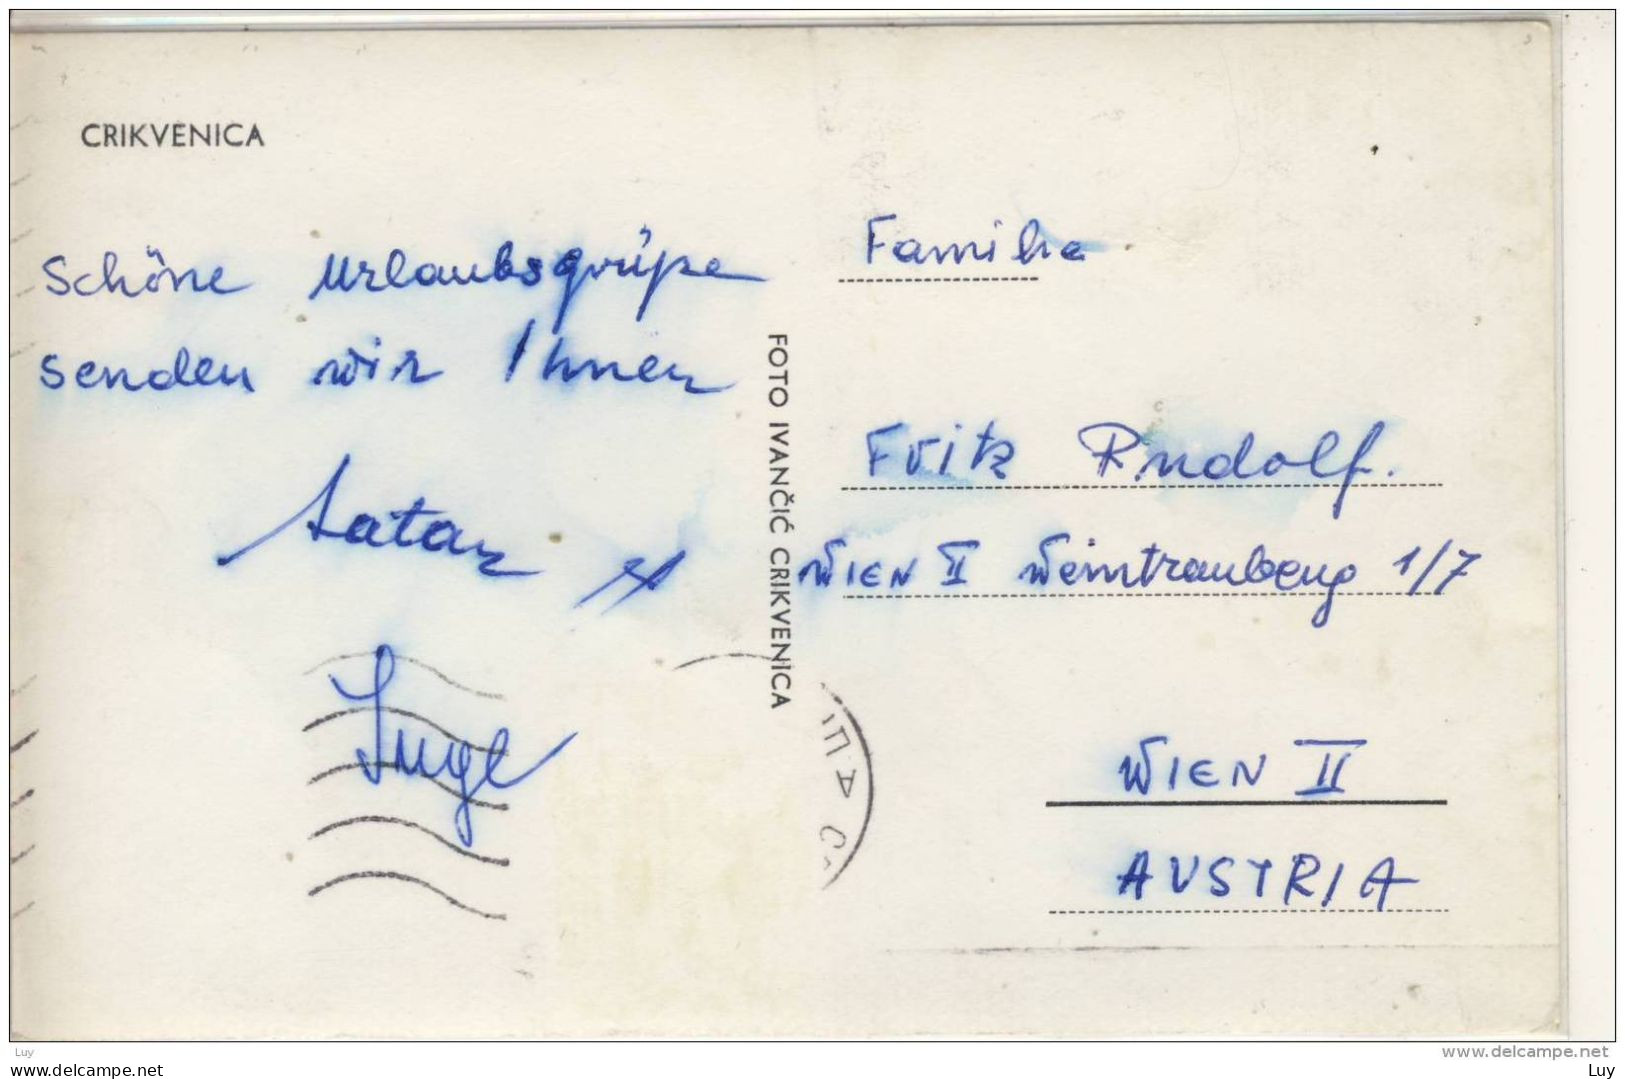 CRIKVENICA
Schöne Urlaubsgrüße
senden wir Ihnen
Inge
FOTO IVANČIĆ CRIKVENICA
Familie
Fritz Rudolf.
WIEN II Weintraubeng 1/7
WIEN II
AUSTRIA
Luy
www.delcampe.net
www.delcampe.net
Luy